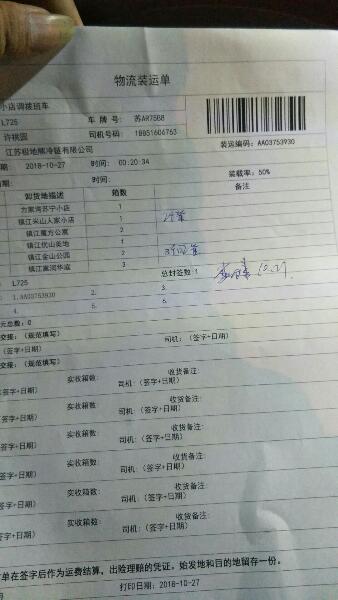 物流装运单
小店调拨班车
L725 车牌号: 苏AR75B8
许祯圆 司机号码: 18851606763
江苏极地熊冷链有限公司 装运编码: AA03753930
期: 2018-10-27 时间: 00:20:34 装载率: 50%
期: 时间:
卸货地描述 箱数 备注
方家湾苏宁小店 1
镇江米山人家小店 1
镇江魔方公寓 2
镇江优山美地 1
镇江金山公园 2
镇江嘉润华庭 3
L725 总封签数 1 10.27
1.AA03753930 2. 3.
4. 5. 6.
元总数: 0
交接: (规范填写) 司机: (签字+日期)
(签字+日期)
交接: (规范填写)
实收箱数: 收货备注:
(签字+日期) 司机: (签字+日期)
实收箱数: 收货备注:
(签字+日期) 司机: (签字+日期)
实收箱数: 收货备注:
(签字+日期) 司机: (签字+日期)
实收箱数: 收货备注:
(签字+日期) 司机: (签字+日期)
实收箱数: 收货备注:
(签字+日期) 司机: (签字+日期)
实收箱数: 收货备注:
(签字+日期) 司机: (签字+日期)
单在签字后作为运费结算，出险理赔的凭证。始发地和目的地留存一份。
打印日期: 2018-10-27